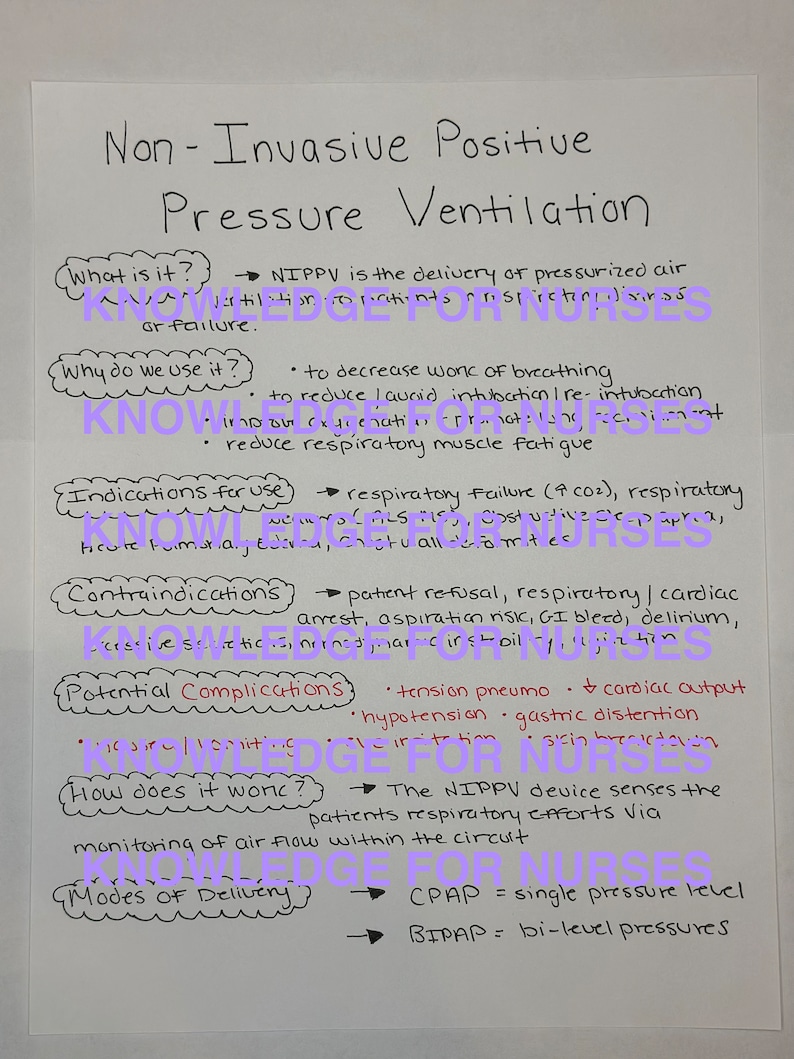 Non-Invasive Positive
Pressure Ventilation
What is it? → NIPPV is the delivery of pressurized air
ventilation to patients in respiratory distress
KNOWLEDGE FOR NURSES
or failure.
Why do we use it? • to decrease work of breathing
• to reduce / avoid intubation / re-intubation
• improve oxygenation promote lung recruitment
KNOWLEDGE FOR NURSES
• reduce respiratory muscle fatigue
Indications for use → respiratory failure (↑CO2), respiratory
obstructive sleep apnea,
KNOWLEDGE FOR NURSES
Acute Pulmonary Edema, chest wall deformities
Contraindications → patient refusal, respiratory / cardiac
arrest, aspiration risk, GI bleed, delirium,
excessive secretions, hemodynamic instability, agitation
KNOWLEDGE FOR NURSES
Potential Complications • tension pneumo • ↓ cardiac output
• hypotension • gastric distention
• nausea / vomiting • eye irritation • skin breakdown
KNOWLEDGE FOR NURSES
How does it work? → The NIPPV device senses the
patients respiratory efforts via
monitoring of air flow within the circuit
KNOWLEDGE FOR NURSES
Modes of Delivery → CPAP = single pressure level
→ BIPAP = bi-level pressures